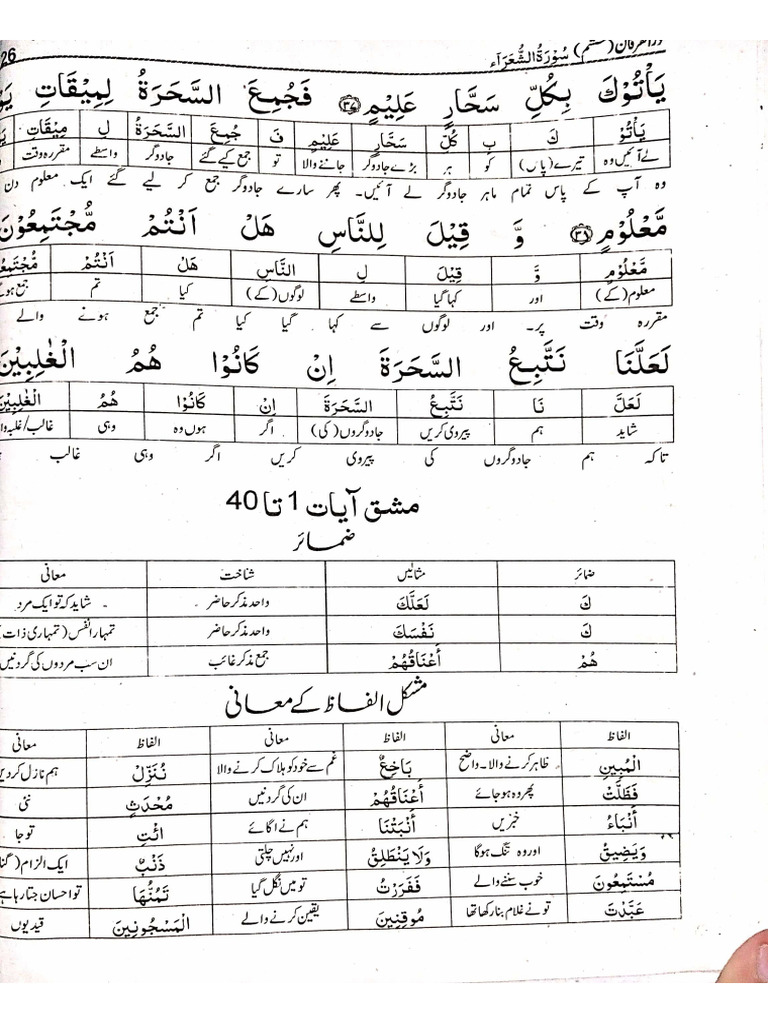 26
سُوْرَةُ الشُّعَرَآء
يَاْتُوْكَ بِكُلِّ سَحَّارٍ عَلِيْمٍ ۝٣٧ فَجُمِعَ السَّحَرَةُ لِمِيْقَاتِ
يَاْتُوْ كَ بِ كُلِّ سَحَّارٍ عَلِيْمٍ فَ جُمِعَ السَّحَرَةُ لِ مِيْقَاتِ
لے آئیں وہ تیرے (پاس) کو ہر بڑے جادوگر جاننے والا تو جمع کیے گئے جادوگر واسطے مقررہ وقت
وہ آپ کے پاس تمام ماہر جادوگر لے آئیں۔ پھر سارے جادوگر جمع کر لیے گئے ایک معلوم دن
مَّعْلُوْمٍ ۝٣٨ وَّ قِيْلَ لِلنَّاسِ هَلْ اَنْتُمْ مُّجْتَمِعُوْنَ
مَّعْلُوْمٍ وَّ قِيْلَ لِ النَّاسِ هَلْ اَنْتُمْ
معلوم (کے) اور کہا گیا واسطے لوگوں (کے) کیا تم
مقررہ وقت پر۔ اور لوگوں سے کہا گیا کیا تم جمع ہونے والے
لَعَلَّنَا نَتَّبِعُ السَّحَرَةَ اِنْ كَانُوْا هُمُ الْغٰلِبِيْنَ
لَعَلَّ نَا نَتَّبِعُ السَّحَرَةَ اِنْ كَانُوْا هُمُ الْغٰلِبِيْنَ
شاید ہم پیروی کریں جادوگروں (کی) اگر ہوں وہ وہی غالب/غلبہ
تاکہ ہم جادوگروں کی پیروی کریں اگر وہی غالب
مشق آیات 1 تا 40
ضمائر
ضمائر مثالیں شناخت معانی
كَ لَعَلَّكَ واحد مذکر حاضر شاید کہ تو ایک مرد
كَ نَفْسَكَ واحد مذکر حاضر تمہارا نفس (تمہاری ذات)
هُمْ أَعْنَاقُهُمْ جمع مذکر غائب ان سب مردوں کی گردنیں
مشکل الفاظ کے معانی
الفاظ معانی الفاظ معانی الفاظ معانی
الْمُبِينِ ظاہر کرنے والا۔ واضح بَاخِعٌ غم سے خود کو ہلاک کرنے والا نُنَزِّلْ ہم نازل کردیں
فَظَلَّتْ پھر وہ ہوجائے أَعْنَاقُهُمْ ان کی گردنیں مُحْدَثٍ نئی
أَنْبَاءُ خبریں أَنْبَتْنَا ہم نے اگائے ائْتِ تو جا
وَيَضِيقُ اور وہ تنگ ہوگا وَلَا يَنْطَلِقُ اور نہیں چلتی ذَنْبٌ ایک الزام
مُسْتَمِعُونَ خوب سننے والے فَفَرَرْتُ تو میں نکل گیا تَمُنُّهَا تو احسان جتا رہا ہے
عَبَّدْتَ تو نے غلام بنا رکھا تھا مُوقِنِينَ یقین کرنے والے الْمَسْجُونِينَ قیدیوں